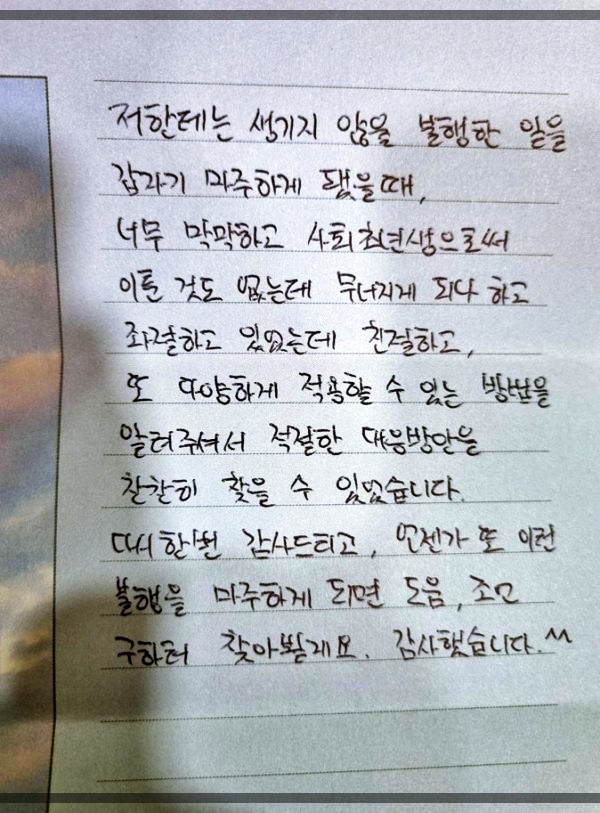 저한테는 생기지 않을 불행한 일을
갑자기 마주하게 됐을때,
너무 막막하고 사회초년생으로써
이룬 것도 없는데 무너지게 되나 하고
좌절하고 있었는데 친절하고,
또 다양하게 적용할 수 있는 방법을
알려주셔서 적절한 대응방안을
찬찬히 찾을 수 있었습니다.
다시한번 감사드리고, 언젠가 또 이런
불행을 마주하게 되면 도움, 조언
구하러 찾아뵐게요. 감사했습니다.^^